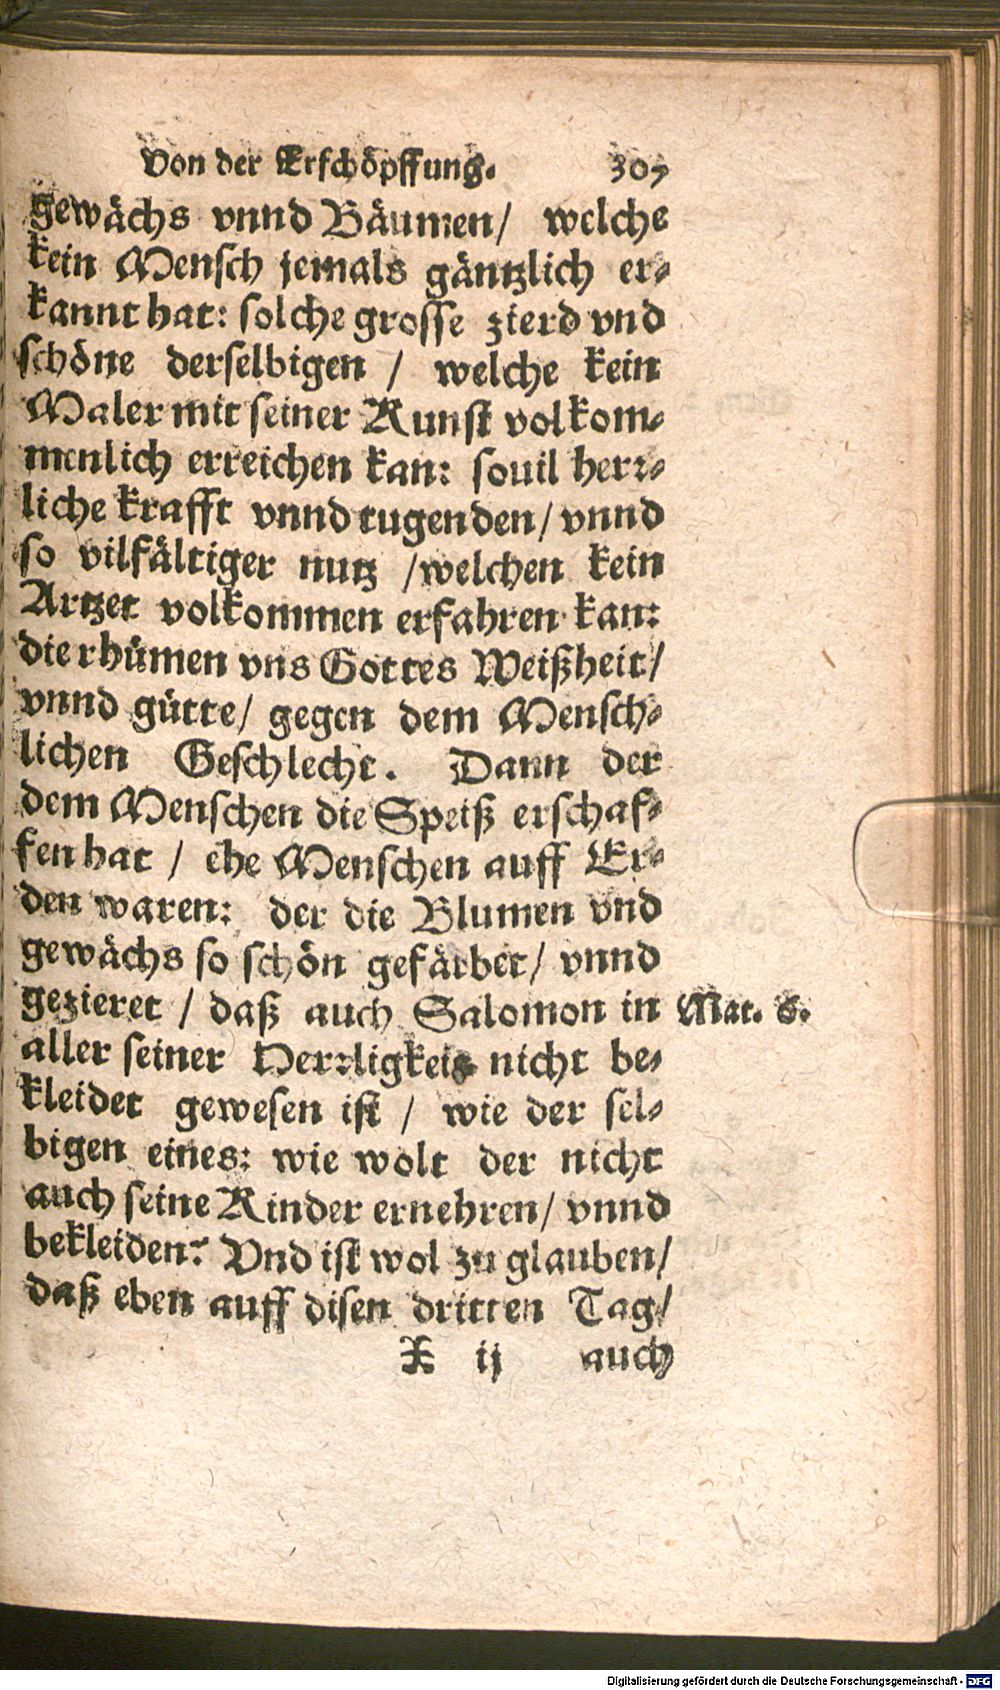 Von der Erschöpffung. 307
gewächs vnnd Bäumen/ welche
kein Mensch jemals gäntzlich er-
kannt hat: solche grosse zierd vnd
schöne derselbigen / welche kein
Maler mit seiner Kunst volkom-
menlich erreichen kan: souil herr-
liche krafft vnnd tugenden/ vnnd
so vilfältiger nutz /welchen kein
Artzet volkommen erfahren kan:
die rhümen vns Gottes Weißheit/
vnnd gütte/ gegen dem Mensch-
lichen Geschlecht. Dann der
dem Menschen die Speiß erschaf-
fen hat / ehe Menschen auff Er-
den waren: der die Blumen vnd
gewächs so schön gefärbet/ vnnd
gezieret / daß auch Salomon in Mat. 6.
aller seiner Herrligkeit nicht be-
kleidet gewesen ist / wie der sel-
bigen eines: wie wolt der nicht
auch seine Kinder ernehren/ vnnd
bekleiden? Vnd ist wol zu glauben/
daß eben auff disen dritten Tag/
X ij auch
Digitalisierung gefördert durch die Deutsche Forschungsgemeinschaft - DFG